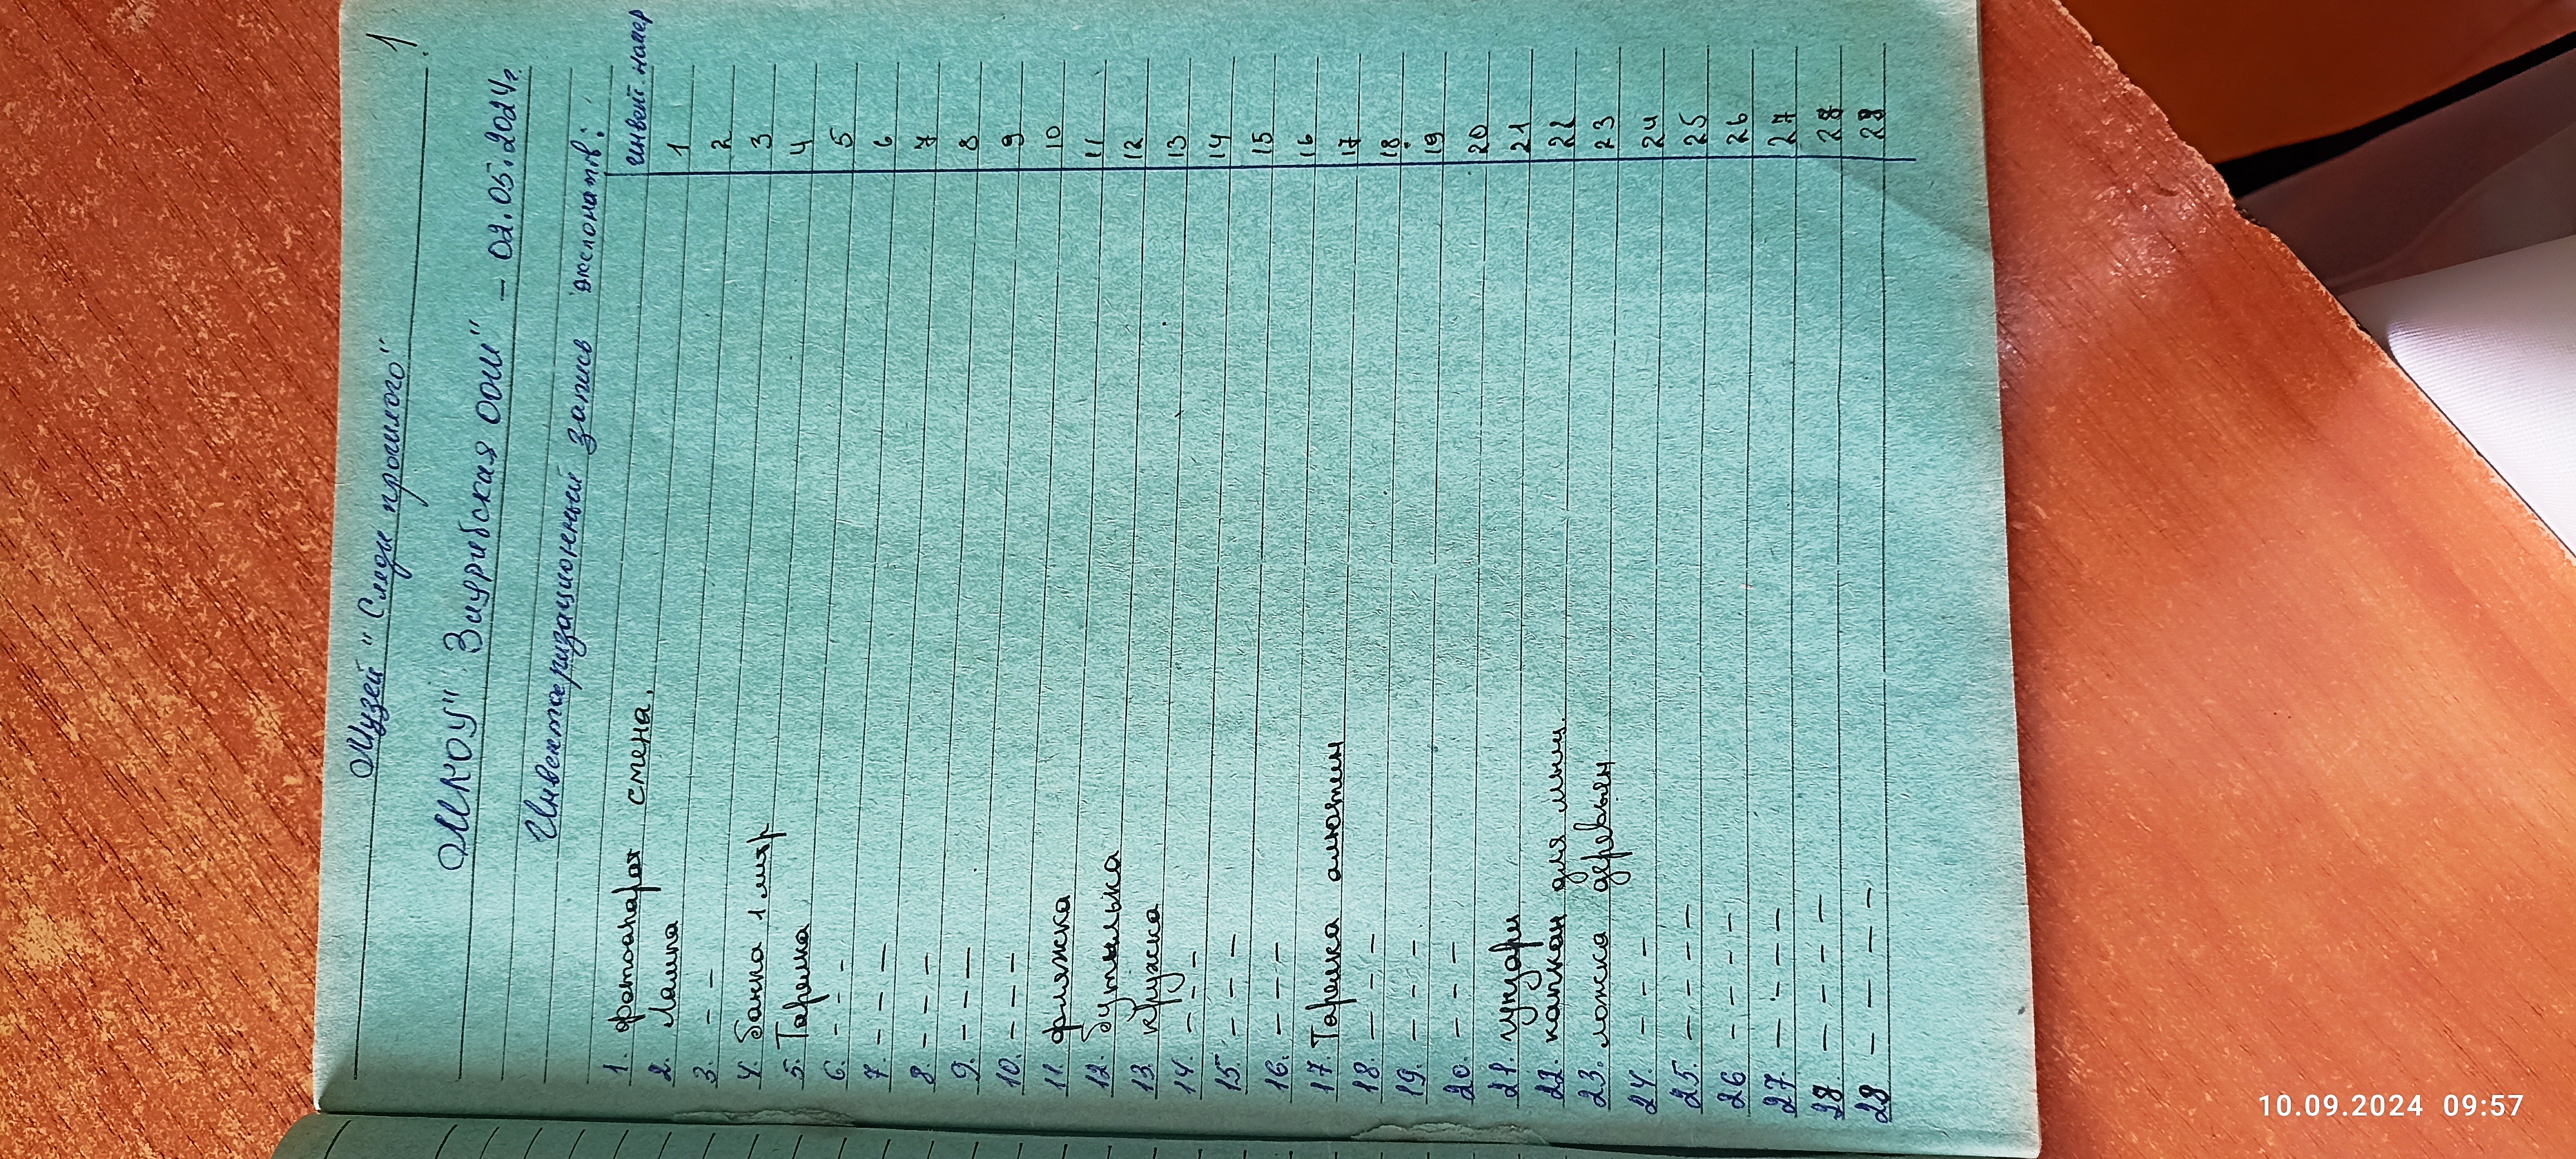 1.
Музей "Следы прошлого"
МКОУ" Зиурибская ООШ" - 02.05.2024г.
Инвентаризационный запись экспонатов:
инвент. номер
1. фотоапарат смена. 1
2. Лампа 2
3. - - 3
4. Банка 1 литр 4
5. Тарелка 5
6. - - - 6
7. - - - 7
8. - - - 8
9. - - - 9
10. - - - 10
11. фляжка 11
12. бутылька 12
13. кружка 13
14. - - - 14
15. - - - - 15
16. - - - 16
17. Тарелка алюмин 17
18. - - - 18.
19. - - - 19
20. - - - 20
21. 21
22. капкан для мыш. 22
23. ложка деревян. 23
24. - - - - 24
25. - - - - 25
26 - - - - 26
27. - - - - 27
28 - - - - 28
29 - - - - 29
10.09.2024 09:57